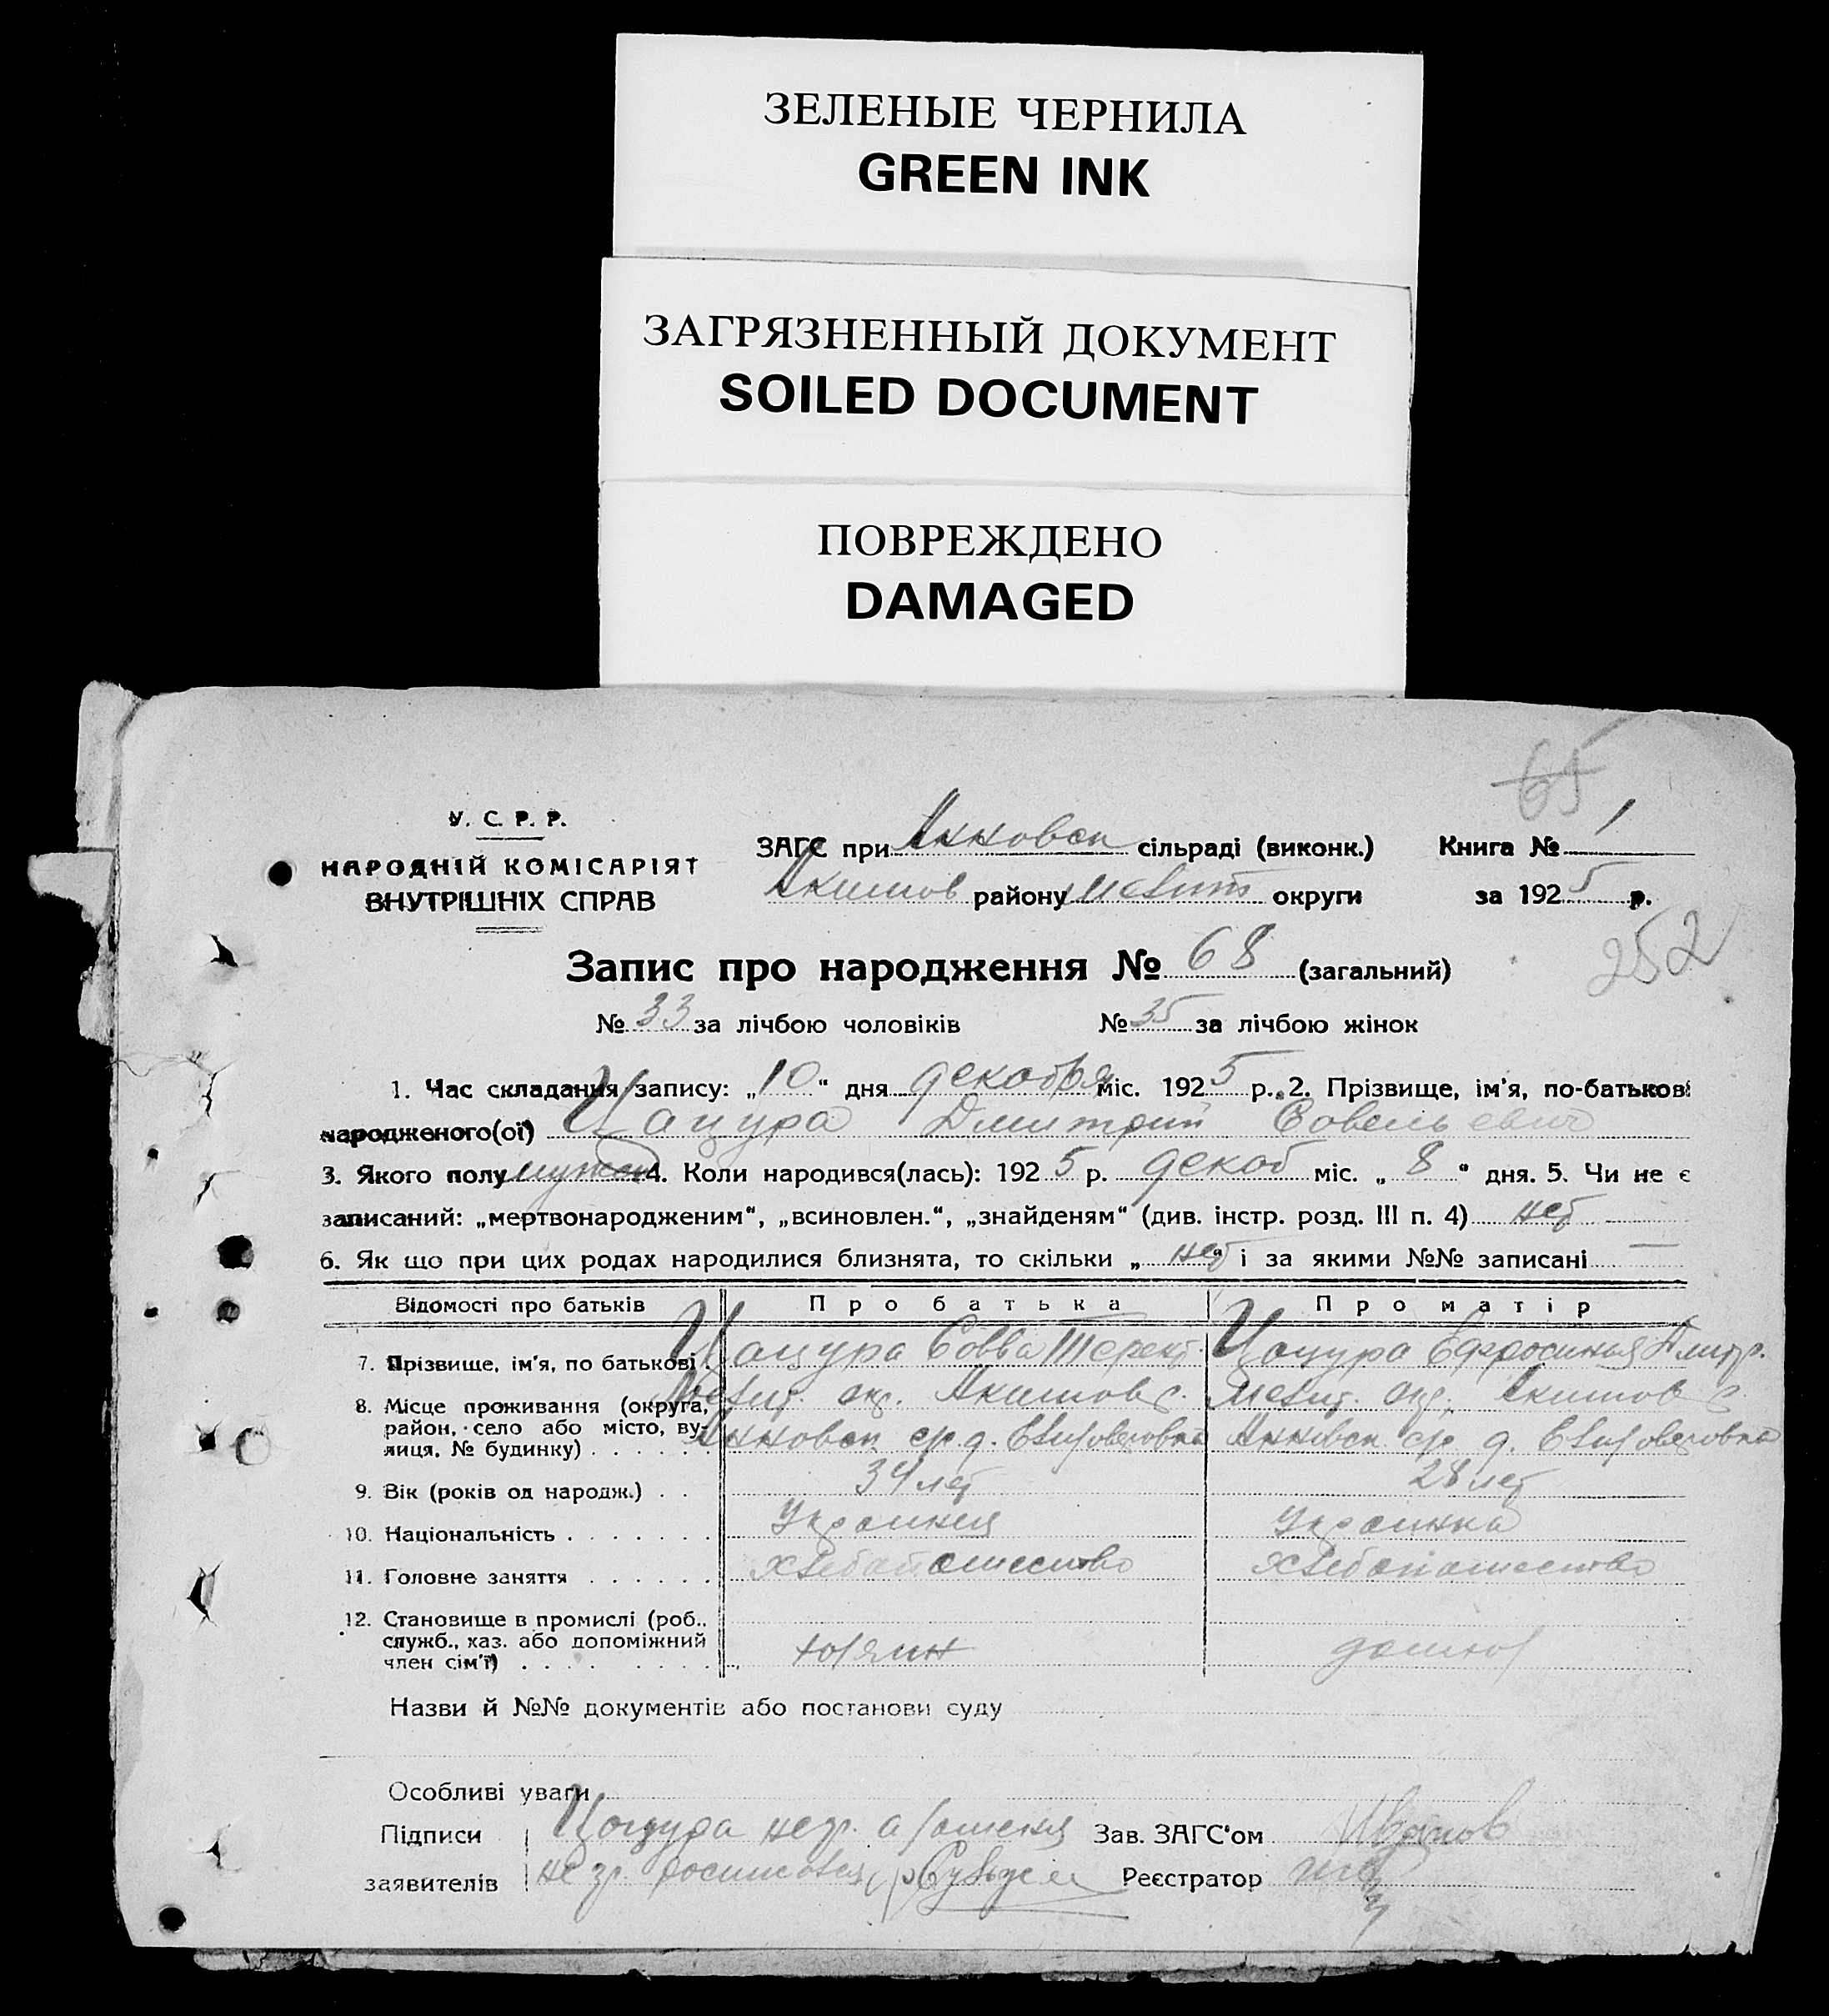 ЗЕЛЕНЫЕ ЧЕРНИЛА
GREEN INK
ЗАГРЯЗНЕННЫЙ ДОКУМЕНТ
SOILED DOCUMENT
ПОВРЕЖДЕНО
DAMAGED
65
У. С. Р. Р.
НАРОДНІЙ КОМІСАРІЯТ
ВНУТРІШНІХ СПРАВ
ЗАГС при Анновск сільраді (виконк.) Книга № 1
Акимов району Мелит округи за 1925 р.
252
Запис про народження № 68 (загальний)
№ 33 за лічбою чоловіків № 35 за лічбою жінок
1. Час складання запису: „10“ дня декабря міс. 1925 р. 2. Прізвище, ім'я, по-батькові
народженого(ої) Цацура Дмитрий Совельевич
3. Якого полу мужск 4. Коли народився(лась): 1925 р. декаб міс. „8“ дня. 5. Чи не є
записаний: „мертвонародженим“, „всиновлен.“, „знайденям“ (див. інстр. розд. III п. 4) нет
6. Як що при цих родах народилися близнята, то скільки „нет“ і за якими №№ записані —
Відомості про батьків Про батька Про матір
7. Прізвище, ім'я, по батькові Цацура Совва Цацура Ефросинья Дмитр.
8. Місце проживання (округа, Мелит. окр. Акимов р. Мелит. окр. Акимов р.
район, село або місто, ву-
лиця, № будинку) Анновск с/р д. Анновск с/р д.
9. Вік (років од народж.) 34 лет 28 лет
10. Національність Украинец Украинка
11. Головне заняття хлебопашество хлебопашество
12. Становище в промислі (роб.,
служб., хаз. або допоміжний
член сім'ї) хозяин домхоз
Назви й №№ документів або постанови суду
Особливі уваги
Підписи Цацура негр. а Зав. ЗАГС'ом Иванов
заявителів не гр. Реєстратор